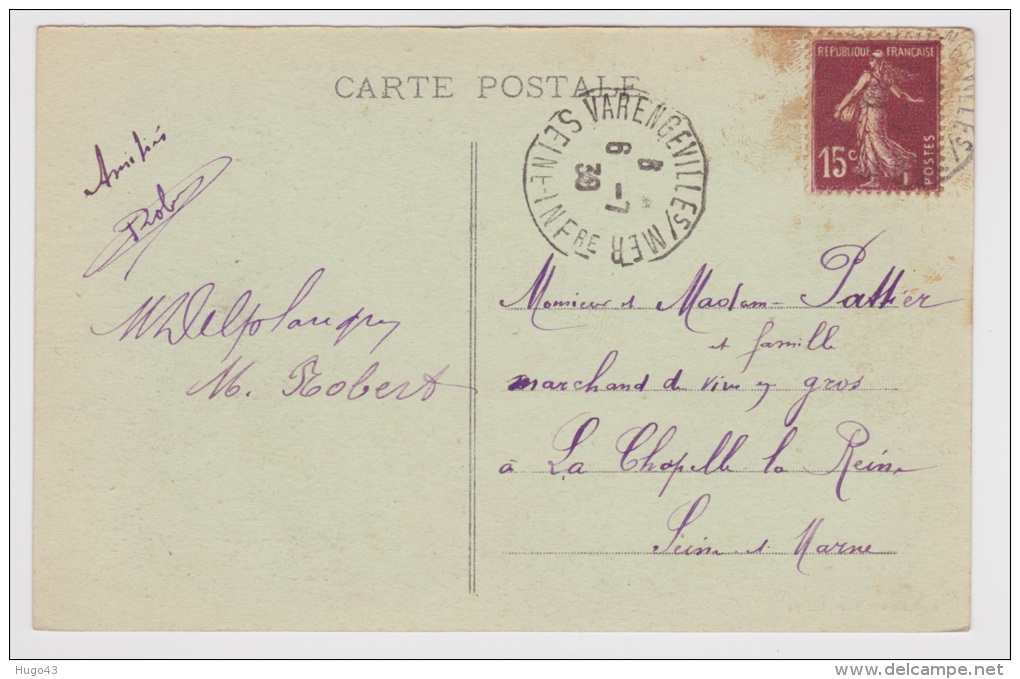 CARTE POSTALE
REPUBLIQUE FRANÇAISE
15c
POSTES
VARENGEVILLE S/MER
SEINE-INFRE
6 - 7
Amitiés
Rob
Monsieur et Madam Pattier
et famille
marchand de vins en gros
à La Chapelle la Reine
Seine et Marne
M. Robert
Hugo43
www.delcampe.net